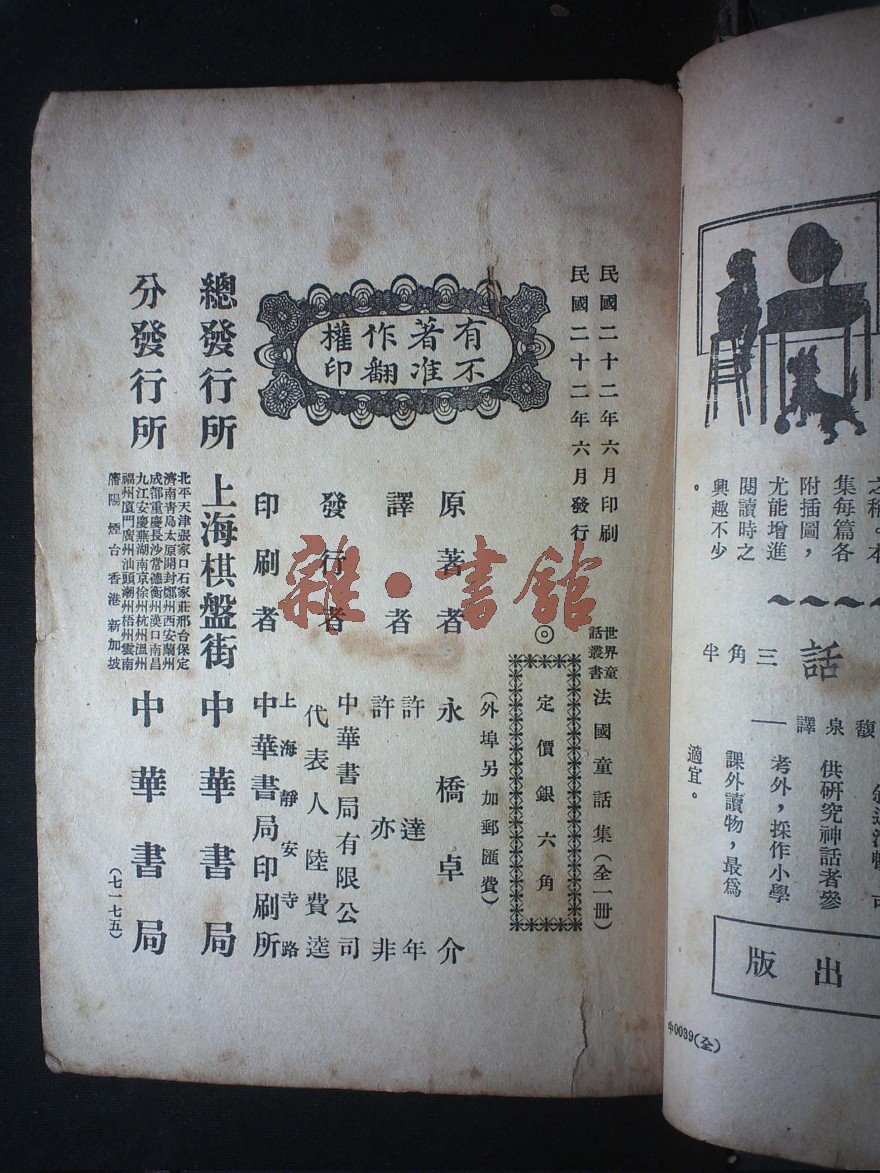 民國二十二年六月印刷
民國二十二年六月發行
世界童話叢書 法國童話集(全一冊)
◎
定價銀六角
(外埠另加郵匯費)
有著作權
不准翻印
原著者 永橋卓介
譯者 許達年
許亦非
發行者 中華書局有限公司
代表人陸費逵
印刷者 上海靜安寺路
中華書局印刷所
總發行所 上海棋盤街 中華書局
分發行所
北平天津張家口石家莊邢台保定
濟南青島太原開封鄭州西安蘭州
成都重慶長沙常德衡州漢口南昌
九江安慶蕪湖南京徐州杭州溫州
福州廈門廣州汕頭潮州梧州雲南
瀋陽煙台香港新加坡
中華書局
(七一七五)
雜·書館
集每篇各
附插圖,
尤能增進
閱讀時之
興趣不少
。
話
三角半
馥泉譯
供研究神話者參
考外,採作小學
課外讀物,最爲
適宜。
出版
0039(全)